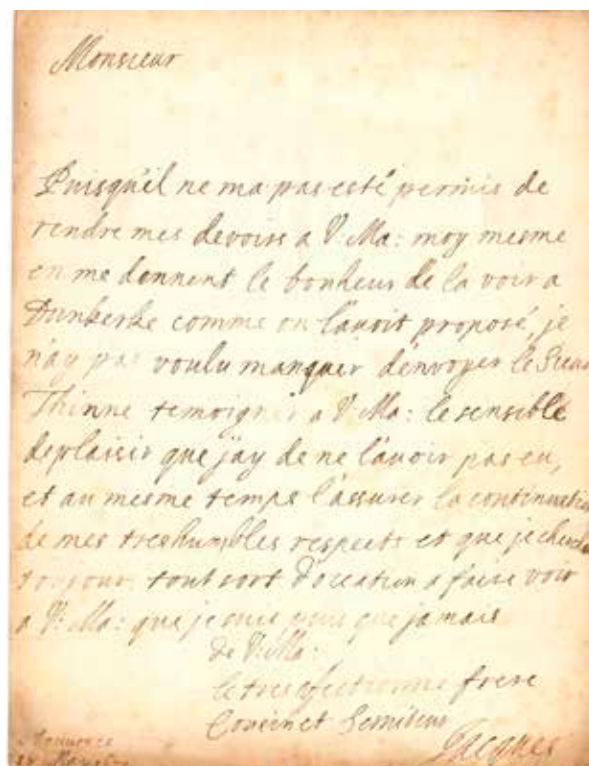 Monsieur
Puisqu'il ne ma pas esté permis de
rendre mes devoirs a V: Ma: moy mesme
en me donnent le bonheur de la voir a
Dunkerke comme on l'avoit proposé, je
n'ay pas voulu manquer d'envoyer le Sieur
Thinne temoigner a V: Ma: le sensible
deplaisir que j'ay de ne l'avoir pas eu,
et au mesme temps l'assurer la continuation
de mes treshumbles respects et que je cherche
toujours tout sort d'occation a faire voir
a V: Ma: que je suis plus que jamais
de V: Ma:
le tres afectionne frere
Cousin et Serviteur
Jacques